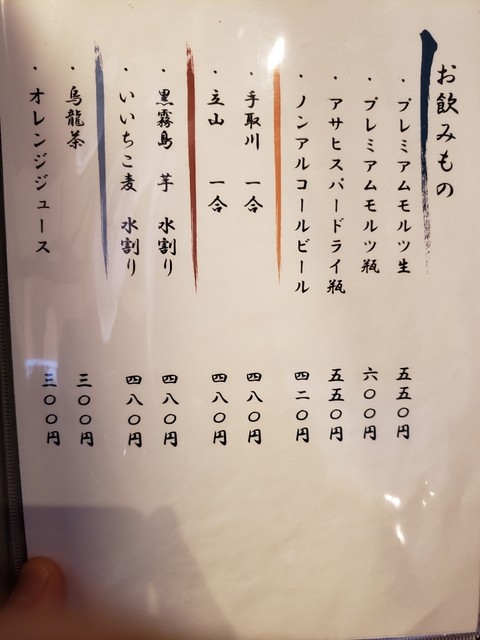 お飲みもの
・プレミアムモルツ生 五五〇円
・プレミアムモルツ瓶 六〇〇円
・アサヒスパードライ瓶 五五〇円
・ノンアルコールビール 四二〇円
・手取川 一合 四八〇円
・立山 一合 四八〇円
・黒霧島 芋 水割り 四八〇円
・いいちこ麦 水割り 四八〇円
・烏龍茶 三〇〇円
・オレンジジュース 三〇〇円